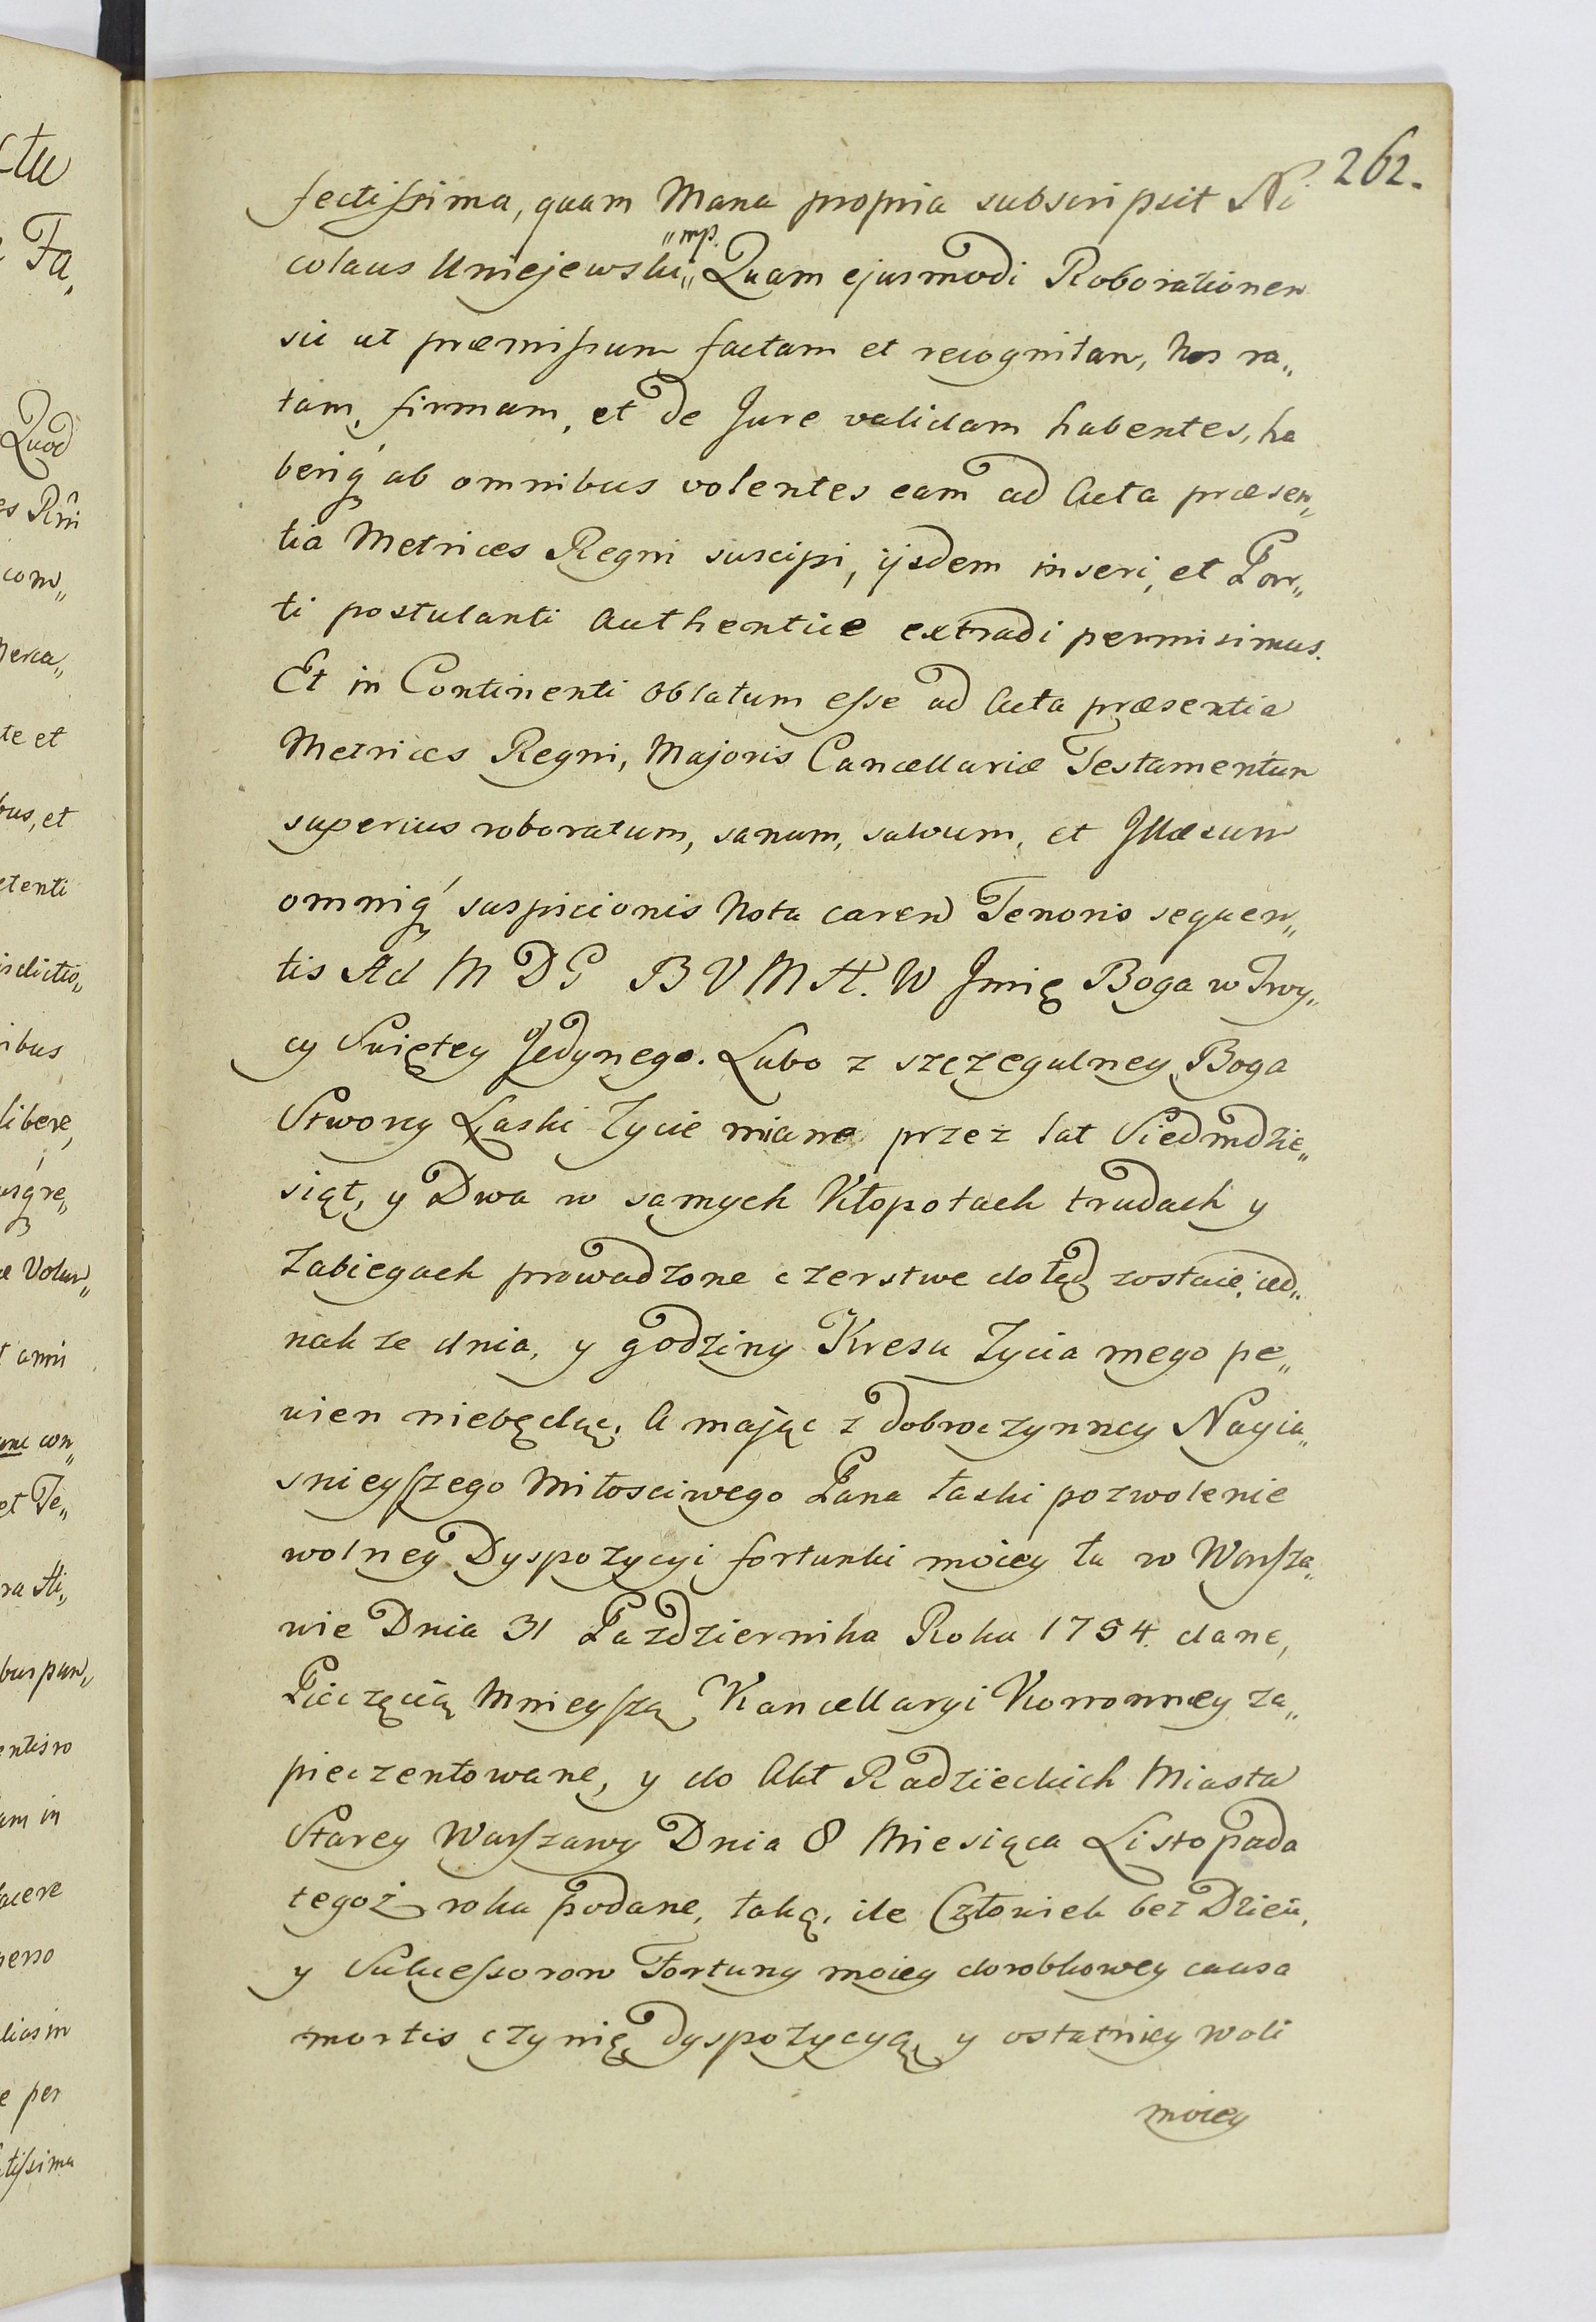 262.
fectissima, quam Manu propria subscripsit Ni
colaus Uniejewski„ Quam ejusmodi Roborationem
sic ut præmissum factam et recognitam, Nos ra„
tam, firmam, et de Jure validam habentes, ha
beriq́ ab omnibus volentes eam ad Acta præsen„
tia Metrices Regni suscipi, ijsdem inseri, et Par„
ti postulanti Authentice extradi permisimus.
Et in Continenti Oblatum esse ad Acta præsentia
Metrices Regni, Majoris Cancellariæ Testamentum
superius roboratum, sanum, salvum, et Illæsum
omniq́ suspicionis Nota caren Tenoris sequen„
tis Ad M D G B V M H. W Jmię Boga w Trwy„
cy Swiętey Jedynego. Lubo z szczegulney Boga
Stworcy Łaski Zycie miane przez lat Siedmdzie„
siąt, y Dwa w samych Kłopotach trudach y
Zabiegach prowadzone czerstwe dotąd zostaie, ied„
nakze dnia, y godziny Kresu Zycia mego pe„
wien niebędąc, A mając z dobroczynney Nayia„
snieyszego Miłosciwego Pana łaski pozwolenie
wolney Dyspozycyi fortunki moiey tu w Warsza„
wie Dnia 31 Pazdziernika Roku 1754. dane,
Pieczęcią Mnieyszą Kancellaryi Koronney za„
pieczentowane, y do Akt Radzieckich Miasta
Starey Warszawy Dnia 8 Miesiąca Listopada
tegoż roku podane, taką, ile Człowiek bez Dzieci,
y Sukcessorow Fortuny moiey dorobkowey causa
mortis czynię dyspozycyą, y ostatniey woli
moiey